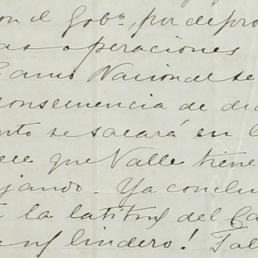 on el Gob.º, por depro
as operaciones
Camo Nacional se
consecuencia de di
nto se sacará en l
ece que Valle tiene
ajando. Ya conclu
la latitud del Ca
lindero! Fal